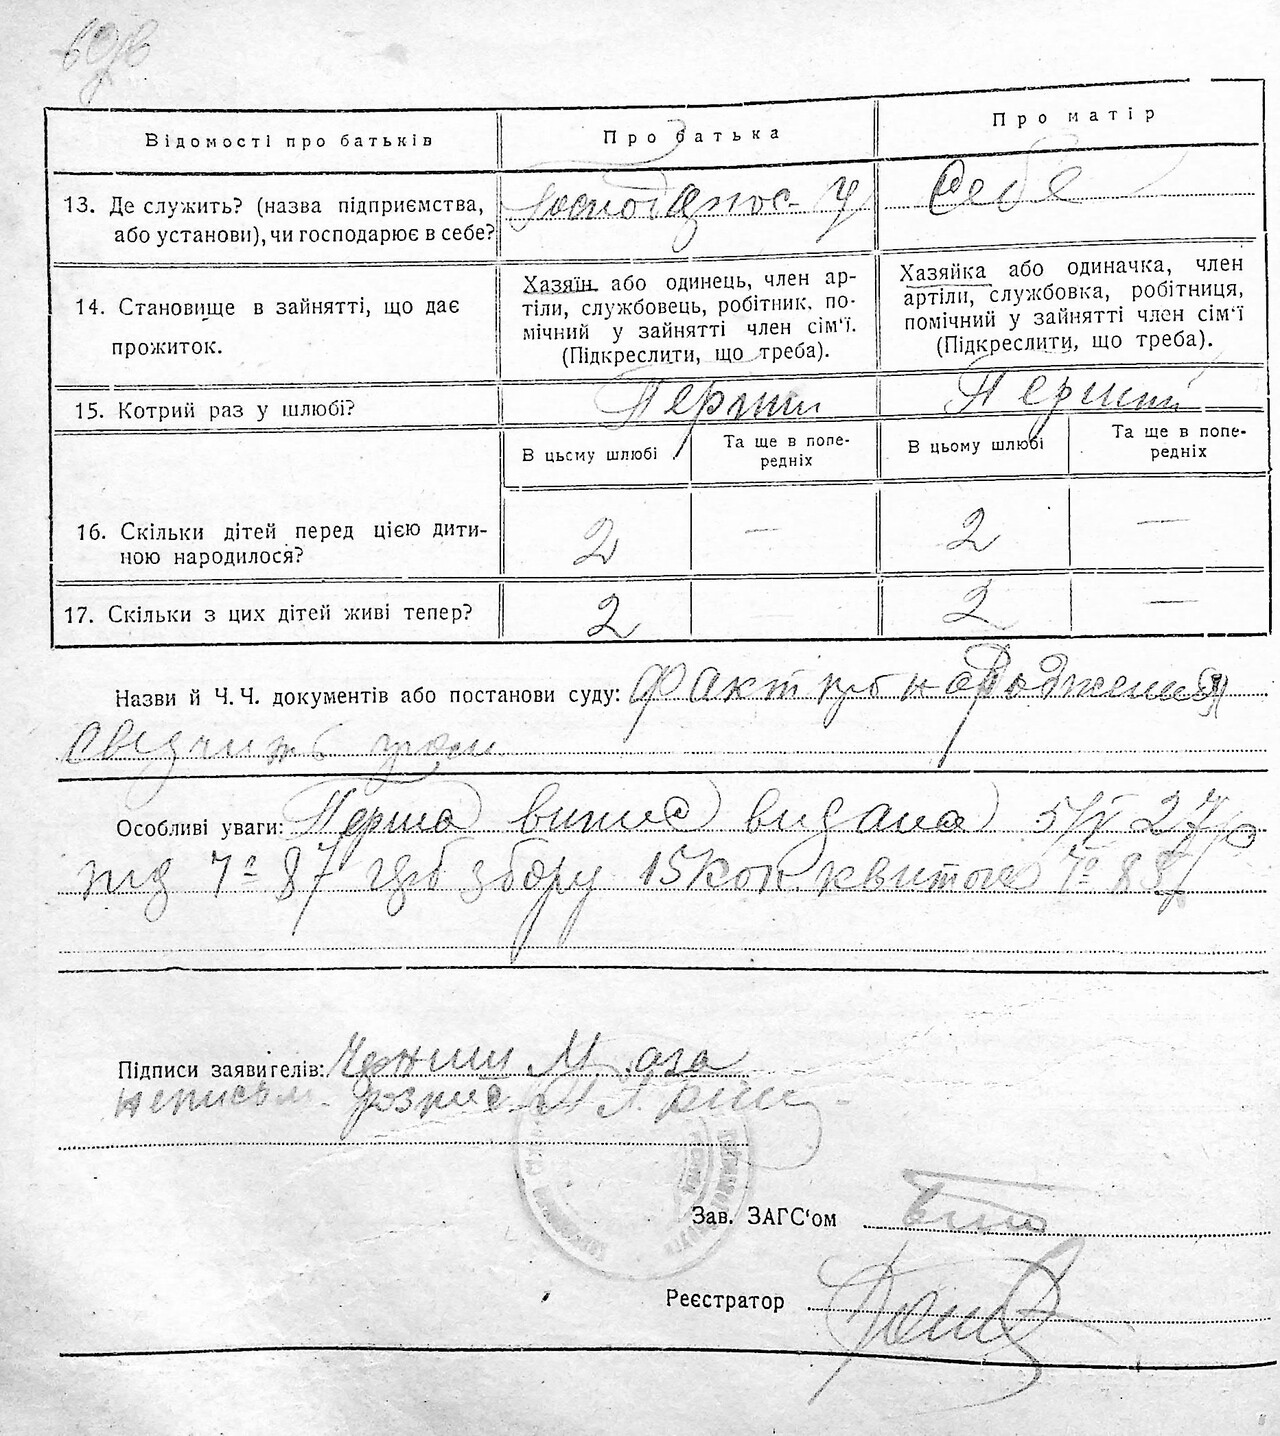 69зв
Відомості про батьків
Про батька
Про матір
13. Де служить? (назва підприємства,
або установи), чи господарює в себе?
Господарює у
себе
14. Становище в зайнятті, що дає
прожиток.
Хазяїн або одинець, член ар-
тіли, службовець, робітник. по-
мічний у зайнятті член сім'ї.
(Підкреслити, що треба).
Хазяйка або одиначка, член
артіли, службовка, робітниця,
помічний у зайнятті член сім'ї
(Підкреслити, що треба).
15. Котрий раз у шлюбі?
Перший
Перший
В цьсму шлюбі
Та ще в попе-
редніх
В цьому шлюбі
Та ще в попе-
редніх
16. Скільки дітей перед цією дити-
ною народилося?
2 — 2 —
17. Скільки з цих дітей живі тепер?
2 — 2 —
Назви й Ч. Ч. документів або постанови суду: Факт про народження
свідчить
Особливі уваги: Перша випис видана 5/IV 27 р
під Ч 87 гербзбору 15 коп. квиток Ч 88
Підписи заявителів: Черниш
неписьм. розпис
Зав. ЗАГС'ом
Реєстратор